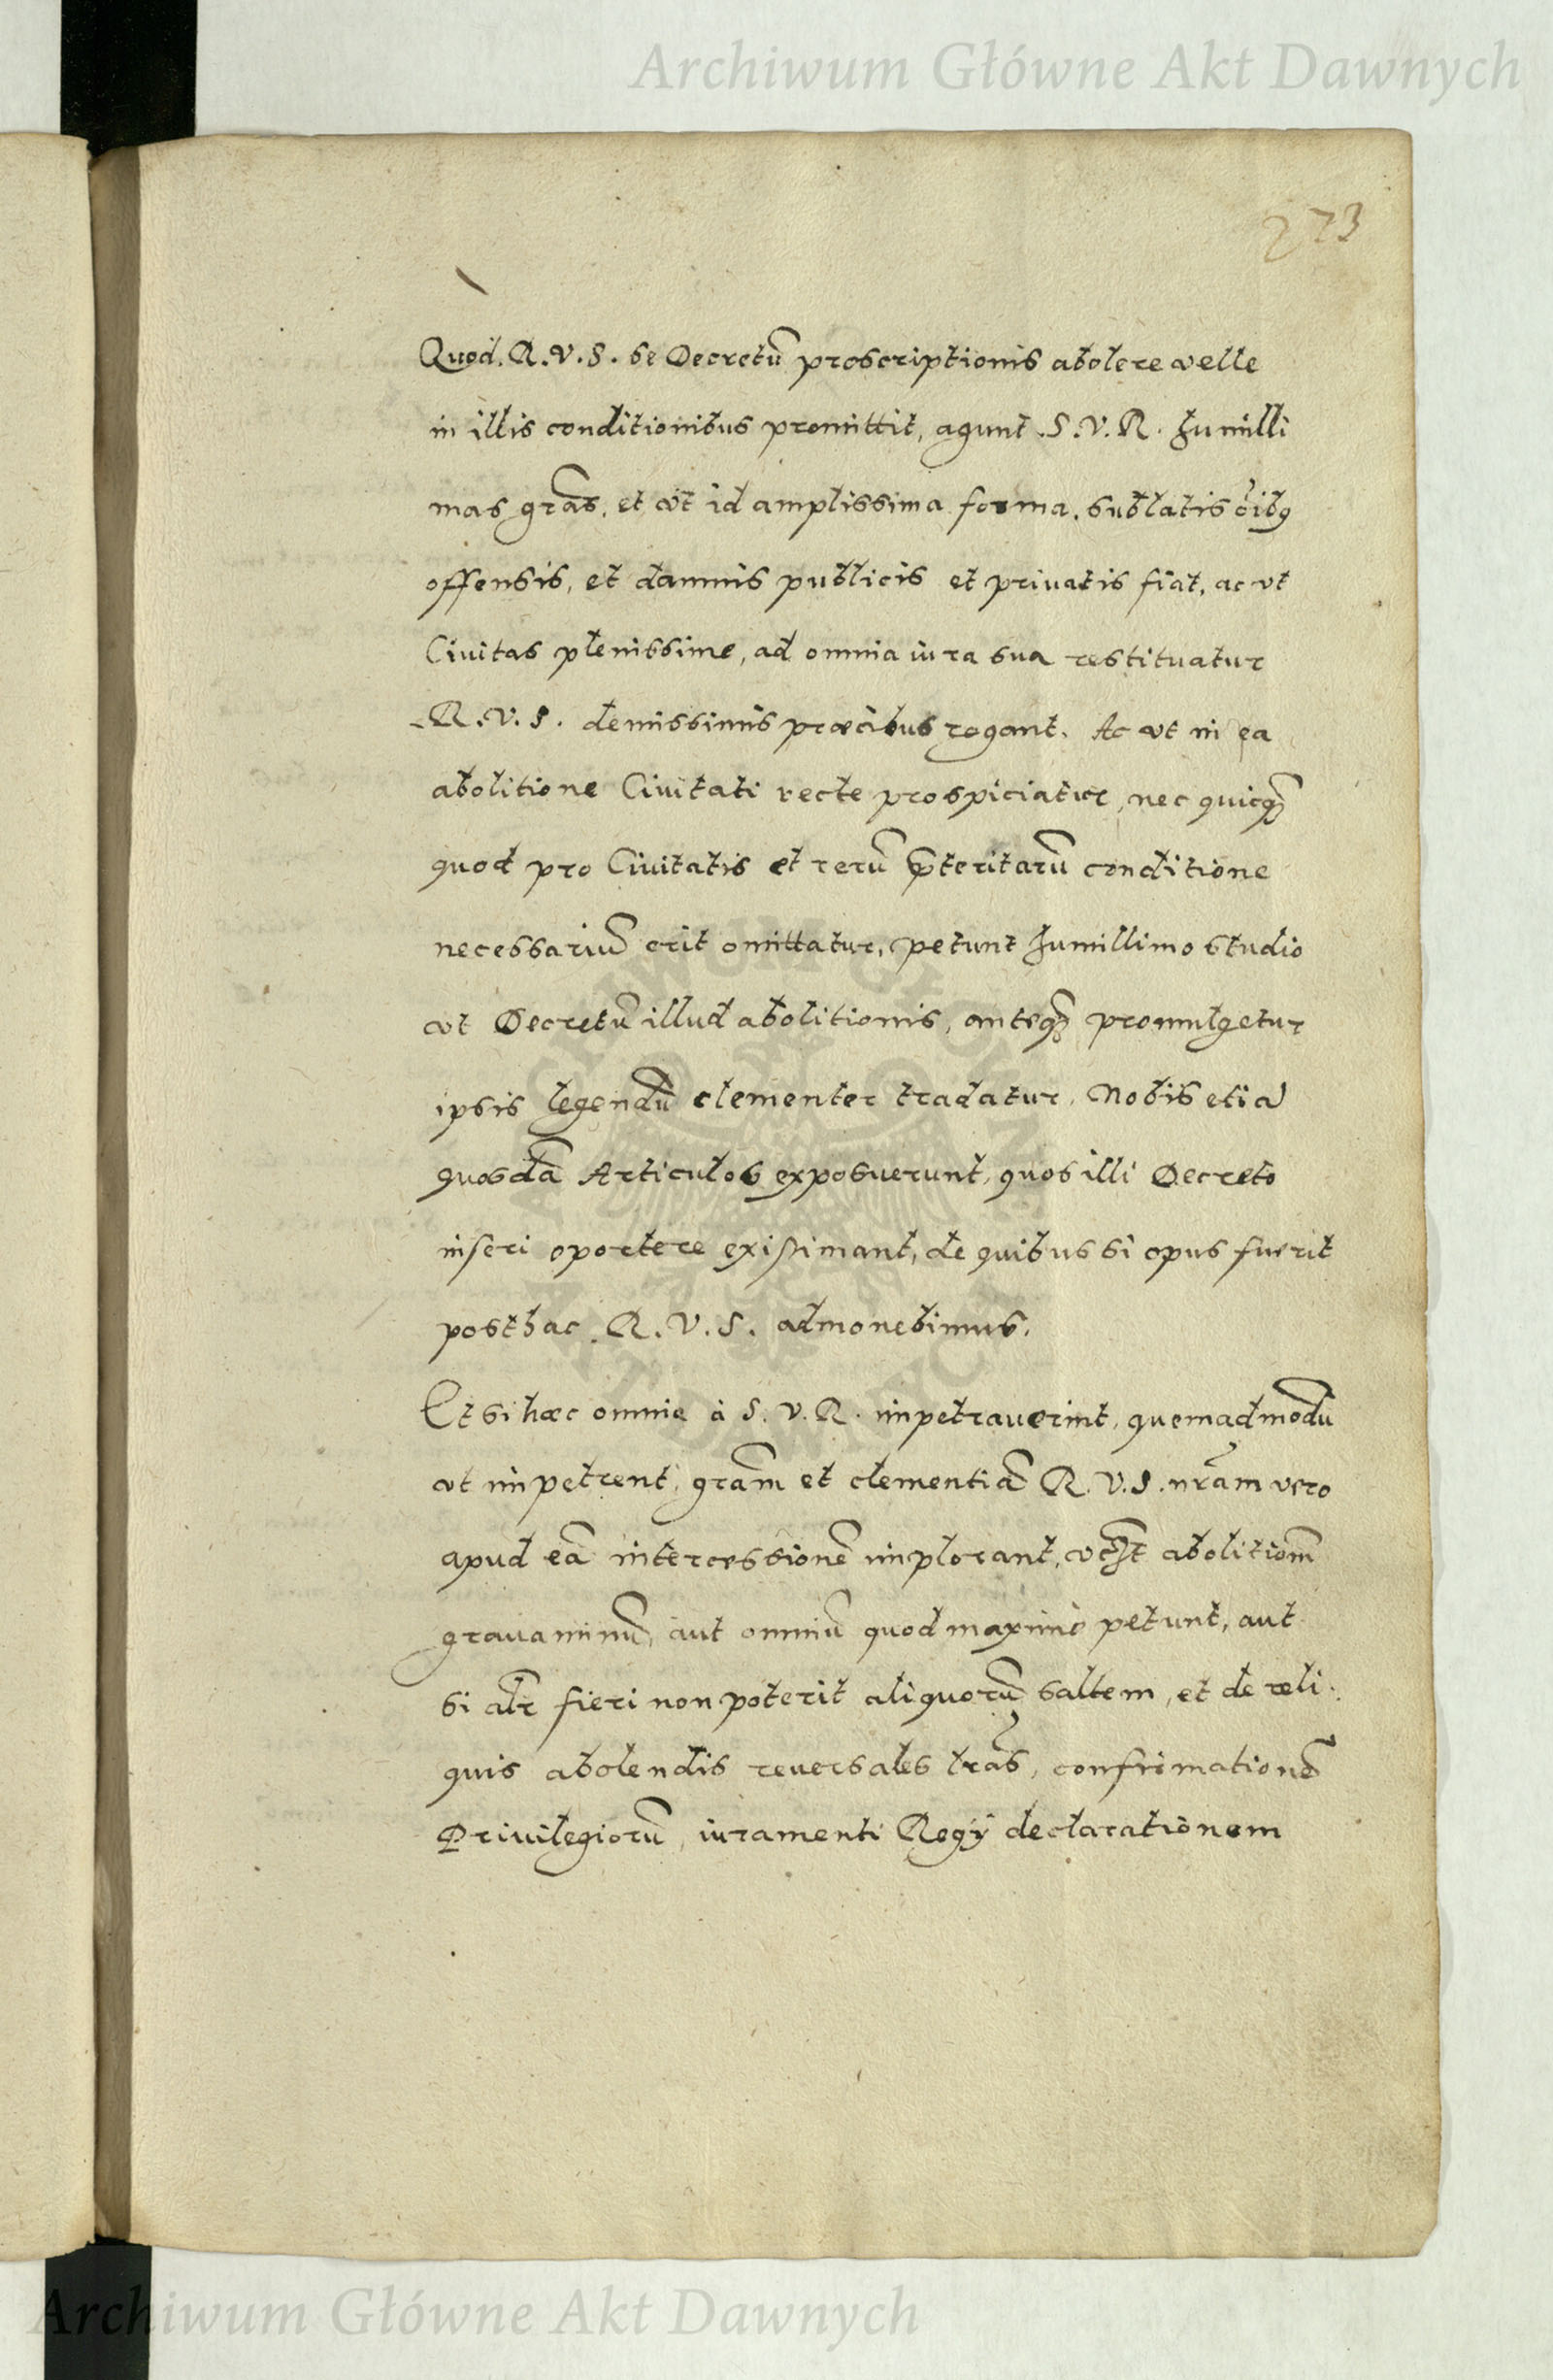 Archiwum Główne Akt Dawnych
273
Quod. R.V.S. se Decretū proscriptionis abolere velle
in illis conditionibus promittit, agunt S.V.R. humilli
mas grās, et vt id amplissima forma, sublatis oībq
offensis, et damnis publicis et priuatis fiat, ac vt
Ciuitas plenissime, ad omnia iura sua restituatur
R.V.S. demissimis præcibus rogant. Ac vt in ea
abolitione Ciuitati recte prospiciatur, nec quicq̃
quod pro Ciuitatis et rerū p̄teritarū conditione
necessariū erit omittatur, petunt humillimo studio
vt Decretū illud abolitionis, anteq̃ promulgetur
ipsis legendū clementer tradatur. Nobis etiā
quosdā Articulos exposuerunt, quos illi Decreto
inseri oportere existimant, de quibus si opus fuerit
posthac R.V.S. admonebimus.
Et si hæc omnia à S.V.R. impetrauerint, quemadmodū
vt impetrent, grām et clementiā R.V.S. nr̄am vero
apud eā intercessionē implorant, abolitiōm
grauaminū, aut omniū quod maxime petunt, aut
si alr̄ fieri non poterit aliquorū saltem, et de reli
quis abolendis reuersales lrās, confirmationē
Priuilegiorū, iuramenti Regij declarationem
ARCHIWUM GŁÓWNE
AKT DAWNYCH
Archiwum Główne Akt Dawnych